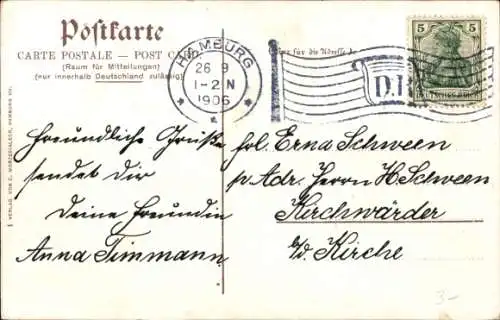 Postkarte
CARTE POSTALE — POST CARD
(Raum für Mitteilungen)
(nur innerhalb Deutschland zulässig)
für die Adresse
HAMBURG
26 9
1-2 N
1906
D.
5 5
Freundliche Grüße
sendet dir
deine Freundin
Anna Timmann
frl. Erna Schween
p Adr. Herrn H Schween
Kirchwärder
b/d. Kirche
VERLAG VON
3-